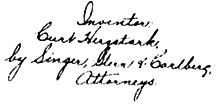 Inventor:
Curt Hergstark,
by Singer, Stern & Carlberg,
Attorneys.